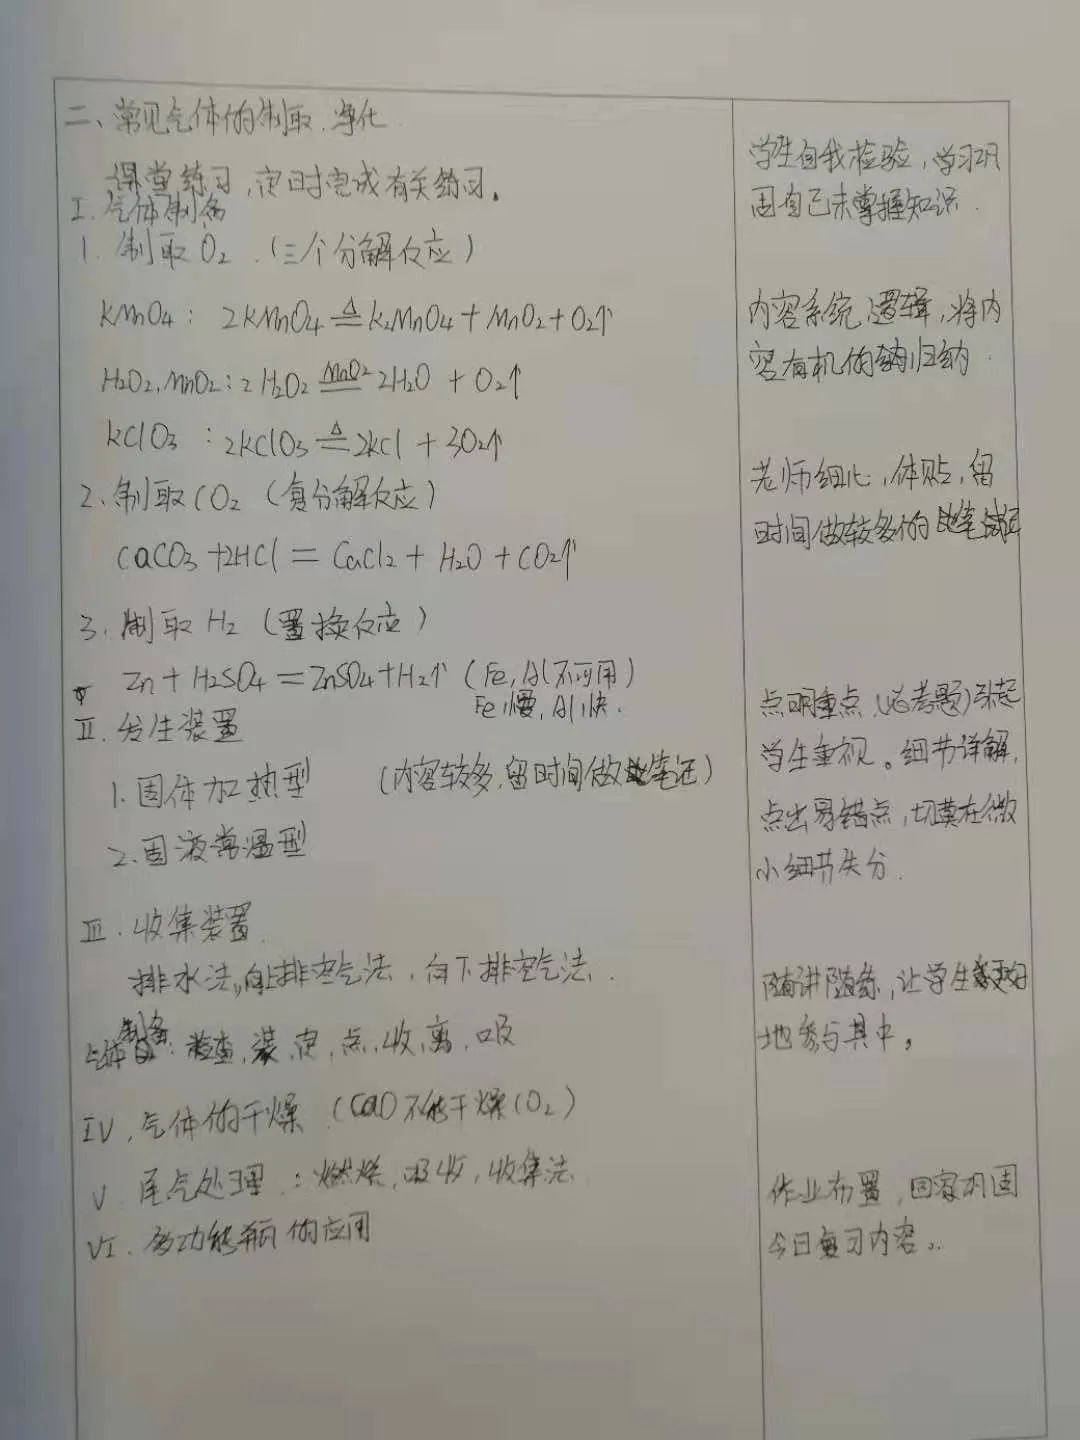 二、常见气体的制取、净化
课堂练习,定时完成有关练习。
I. 气体制备
1. 制取O₂.(三个分解反应)
KMnO₄: 2KMnO₄ ≜ K₂MnO₄ + MnO₂ + O₂↑
H₂O₂, MnO₂: 2H₂O₂ =MnO₂= 2H₂O + O₂↑
KClO₃ : 2KClO₃ ≜ 2KCl + 3O₂↑
2. 制取CO₂(复分解反应)
CaCO₃ + 2HCl = CaCl₂ + H₂O + CO₂↑
3. 制取H₂(置换反应)
Zn + H₂SO₄ = ZnSO₄ + H₂↑(Fe, Al不可用)
Fe慢, Al快.
II. 发生装置
1. 固体加热型 (内容较多,留时间做笔记)
2. 固液常温型
III. 收集装置.
排水法,向上排空气法,向下排空气法.
气体制备: 检查,装,定,点,收,离,吸
IV. 气体的干燥 (CaO不能干燥CO₂)
V. 尾气处理 : 燃烧,吸收,收集法.
VI. 多功能瓶的应用
学生自我检验,学习巩
固自己未掌握知识.
内容系统,逻辑,将内
容有机的归纳.
老师细心,体贴,留
时间做较多的笔记
点明重点(必考题)引起
学生重视。细节详解,
点出易错点,切莫在微
小细节失分.
随讲随练,让学生更好
地参与其中。
作业布置,回家巩固
今日复习内容。